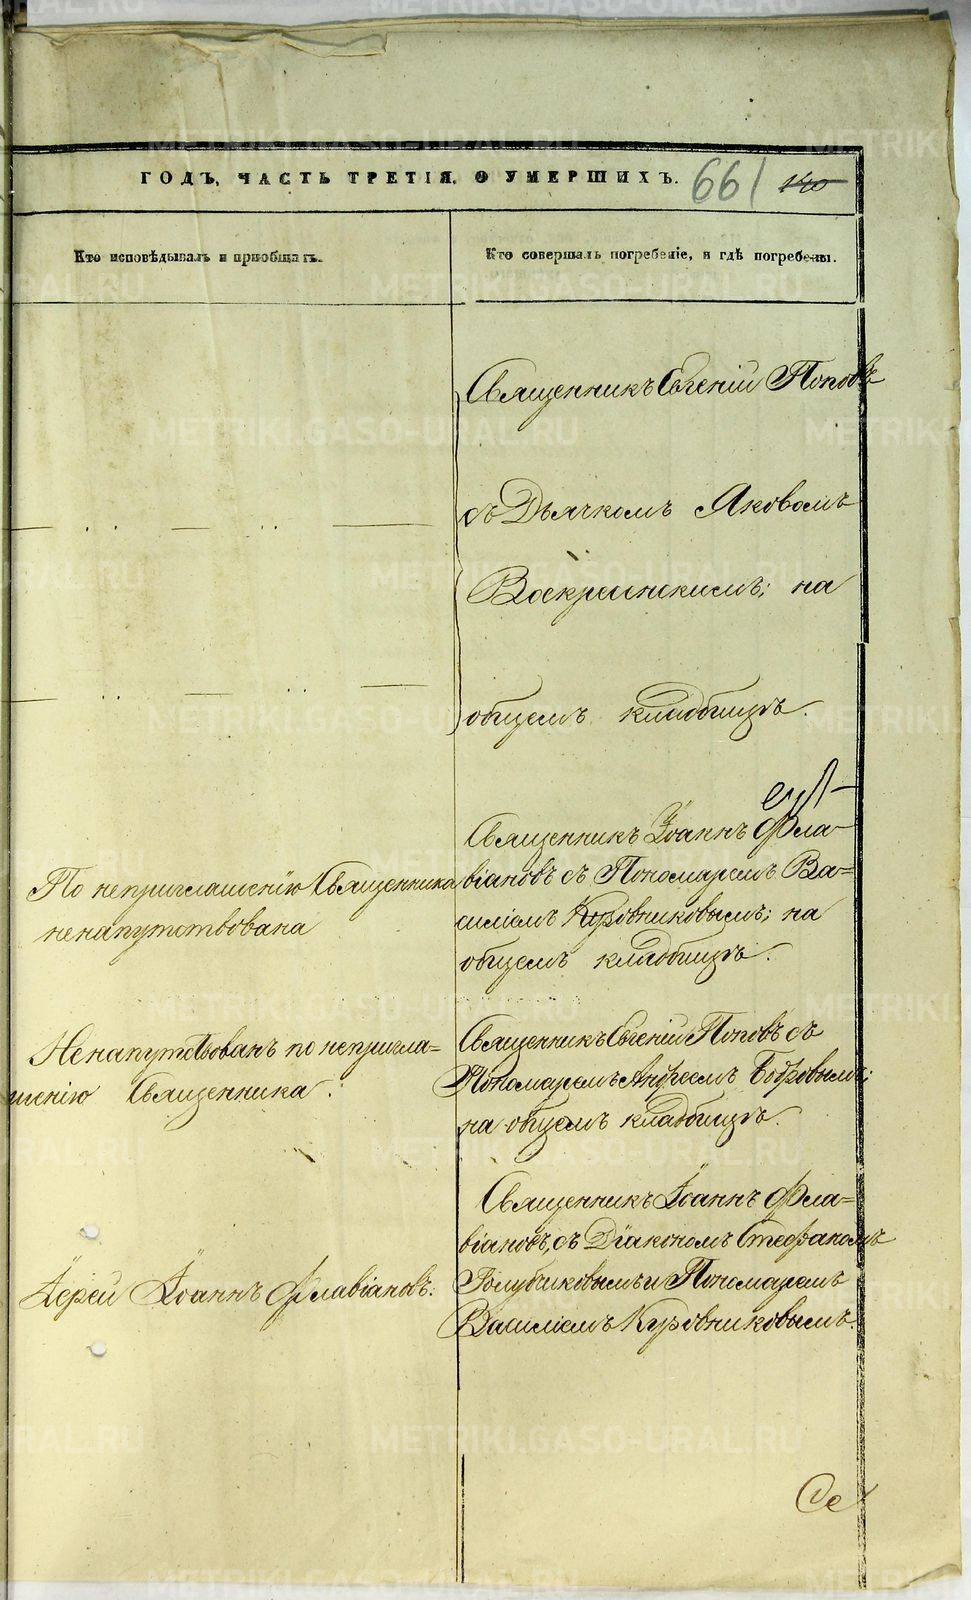 ГОДЪ, ЧАСТЬ ТРЕТІЯ, О УМЕРШИХЪ. 661 140
Кто исповѣдывалъ и пріобщалъ.
Кто совершалъ погребеніе, и гдѣ погребены.
Священникъ Евгеній Поповъ
съ Дьячкомъ Яковомъ
Воскресенскимъ; на
общемъ кладбищѣ.
По неприглашенію Священника
ненапутствована
Священникъ Іоаннъ Фла-
віановъ съ Пономаремъ Ва-
силіемъ Куровниковымъ; на
общемъ кладбищѣ.
Ненапутствованъ по непригла-
шенію Священника.
Священникъ Евгеній Поповъ съ
Пономаремъ Андреемъ Бобровымъ;
на общемъ кладбищѣ.
Іерей Іоаннъ Флавіановъ.
Священникъ Іоаннъ Фла-
віановъ, съ Діакономъ Стефаномъ
Голубчиковымъ и Пономаремъ
Василіемъ Куровниковымъ.
Се
METRIKI.GASO-URAL.RU